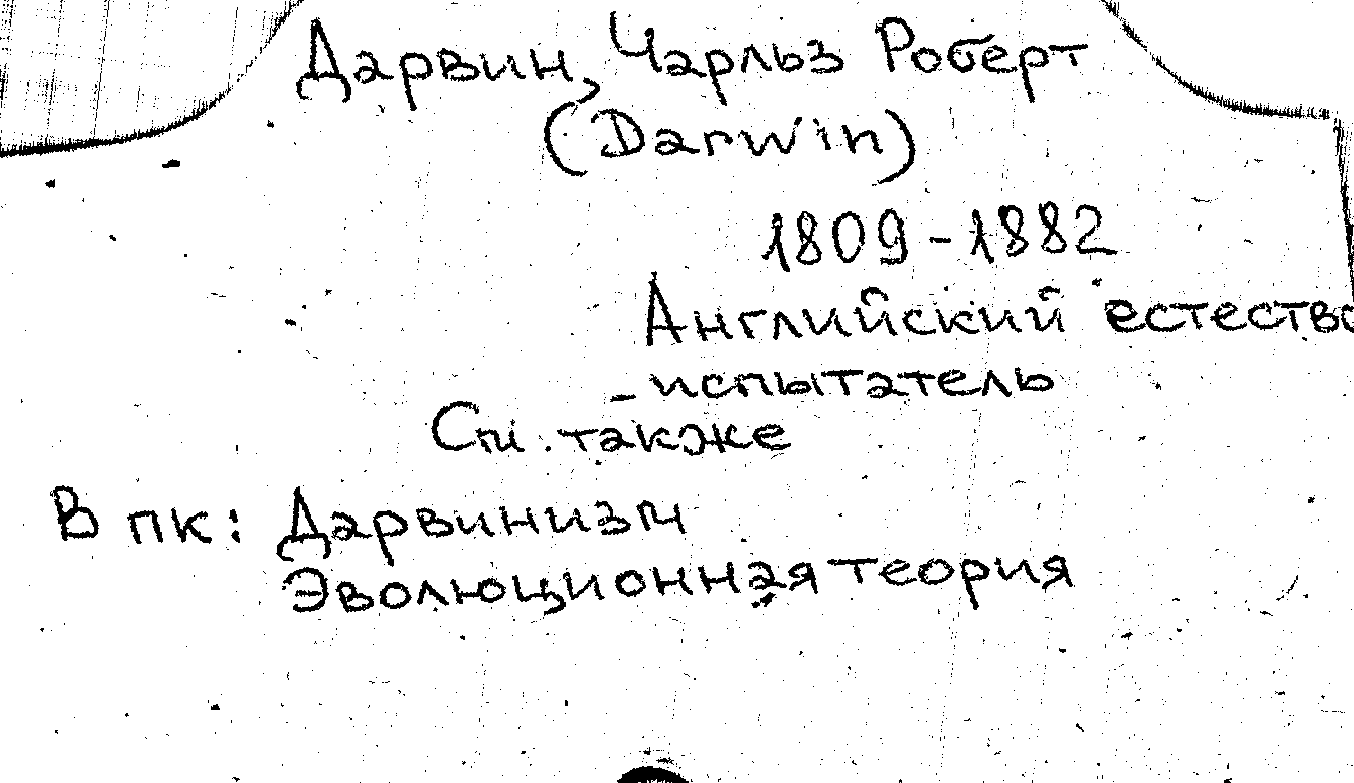 Дарвин, Чарльз Роберт
(Darwin)
1809-1882
Английский естество
-испытатель
См. также
В пк: Дарвинизм
Эволюционная теория